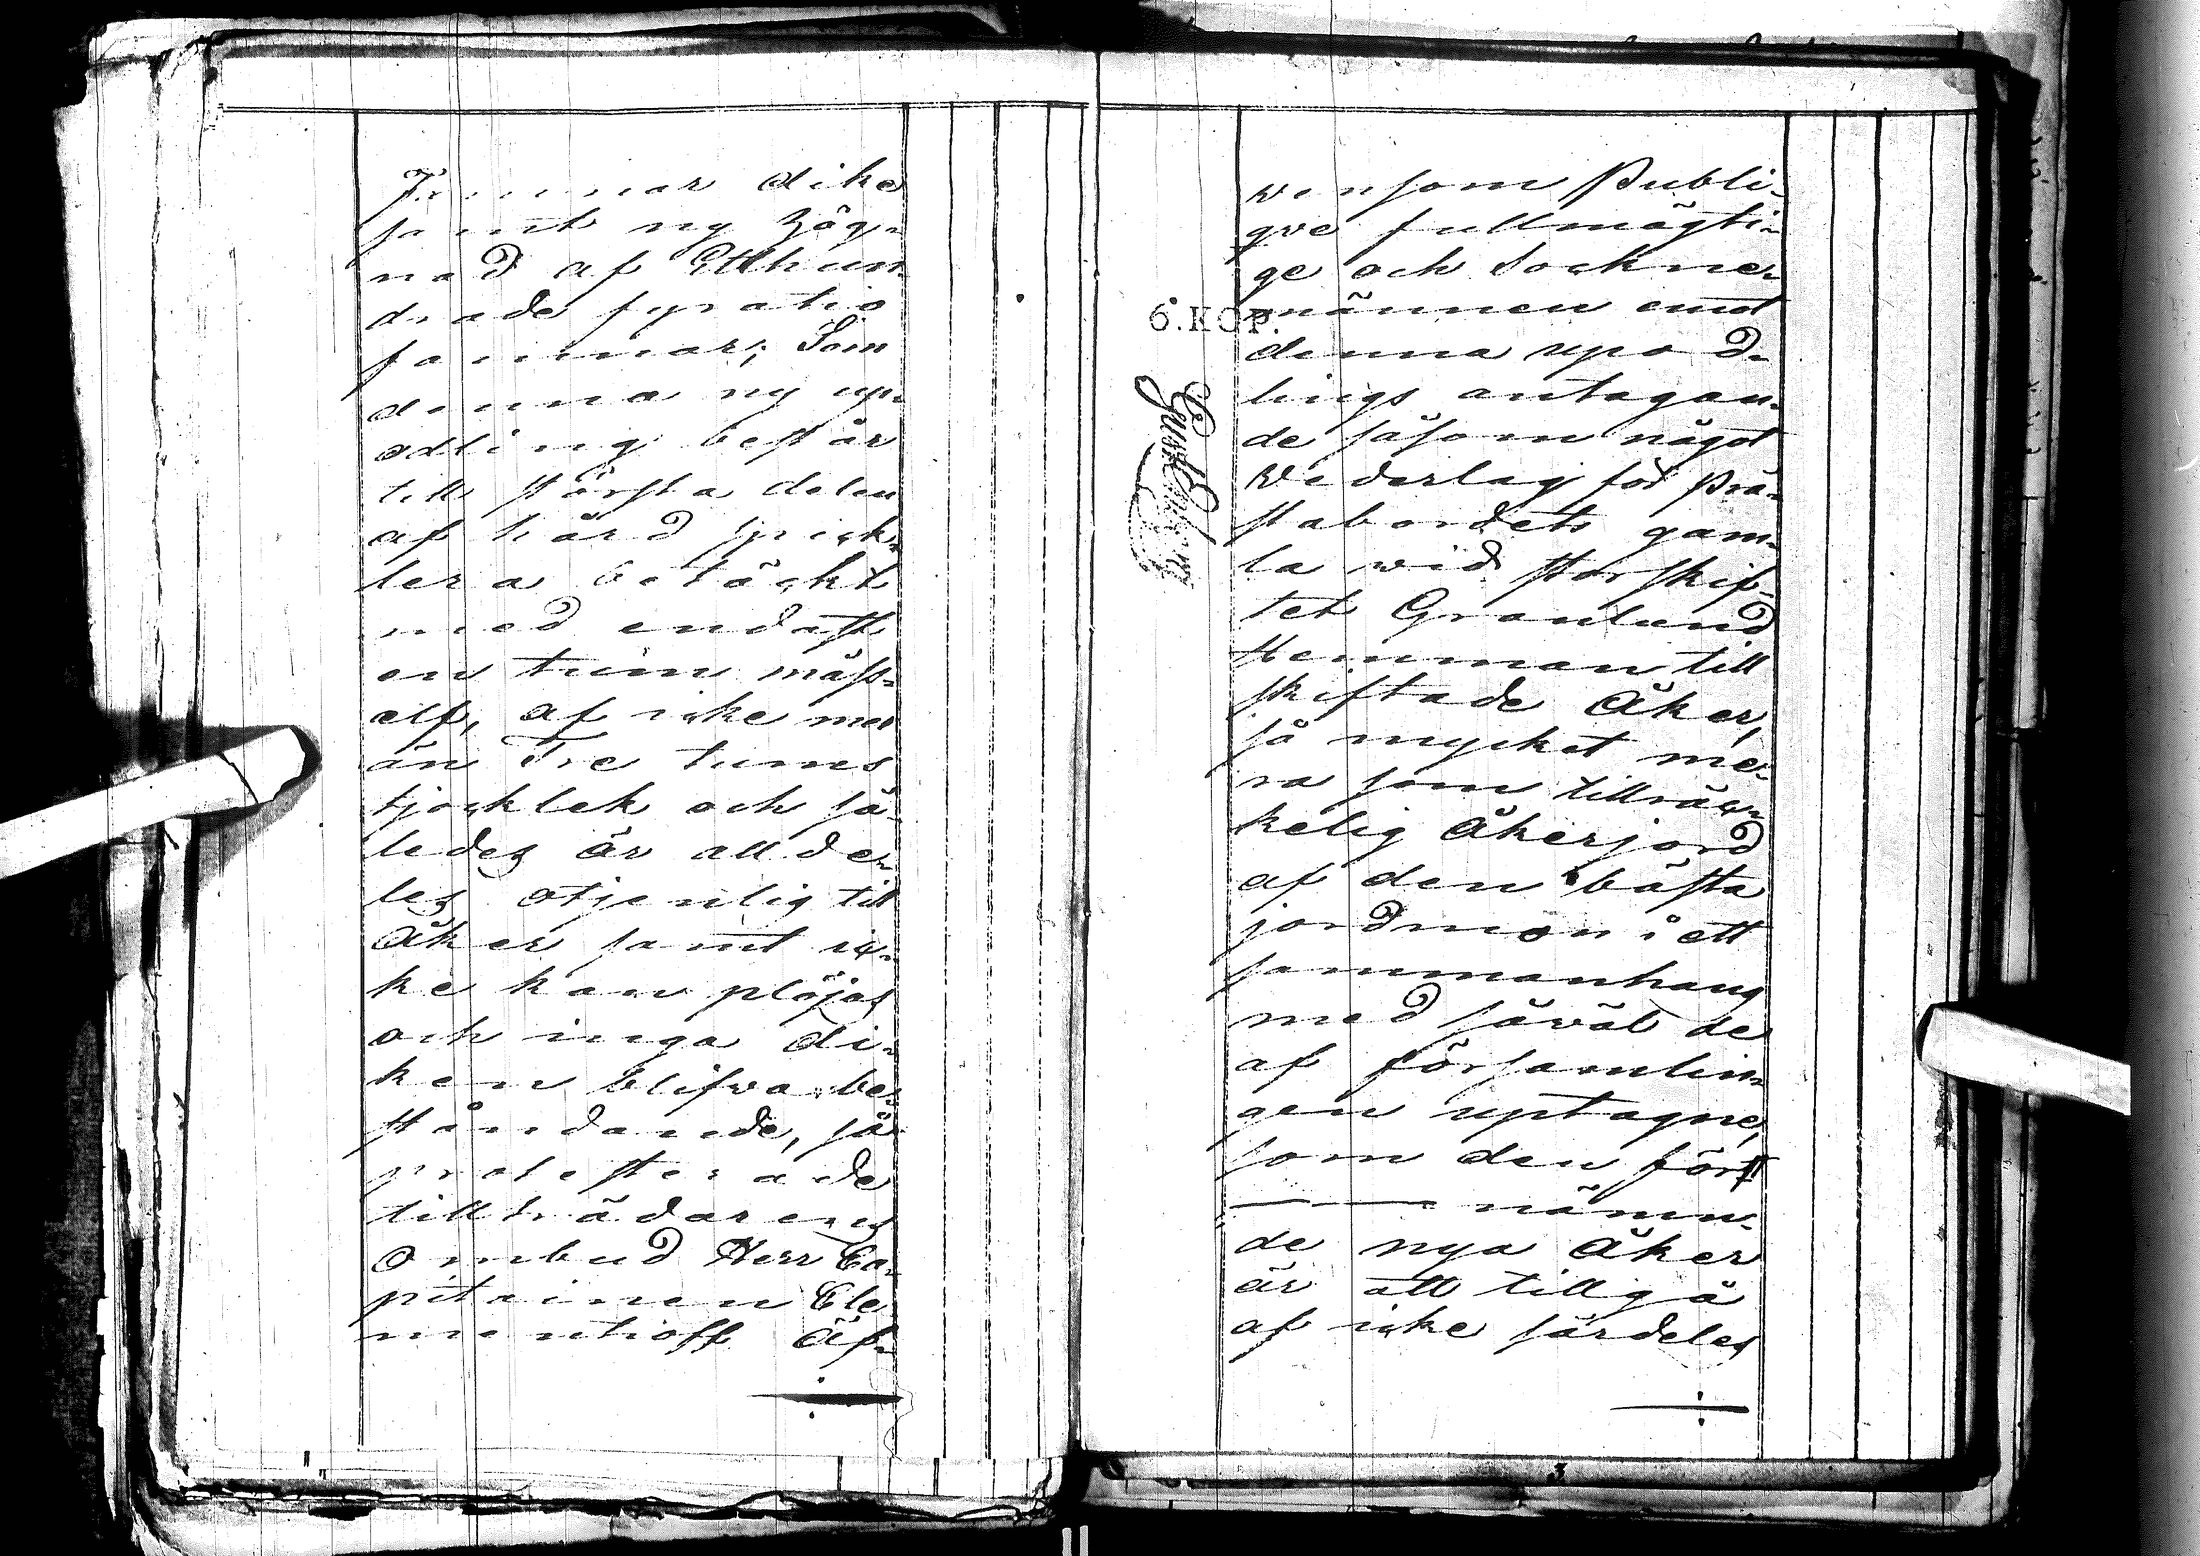 famnar dike
samt ny hög-
nad af Etthun-
drade fyratio
famnar; Som
denna ny up-
odling består
till största delen
af hård spick-
lera betäckt
med endast
en tunn måss-
elf, af icke mer
än Tre tums
tjocklek och så-
ledes är allde-
les otjenlig till
Åker samt ic-
ke kan plöjas
och inga di-
ken blifva be-
ståndande, så
protesterade
tillträdarens
Ombud Herr Ca-
pitainen Cle-
mentioff äf-
wensom Publi-
qve fullmägti-
ge och Sockne-
männen emot
denna upod-
lings antagan-
de såsom något
Wederlag för Prä-
stabordets gam-
la wid storskif-
tet Granlund
Hemman till
skiftade Åker,
så mycket me-
ra som tillräck-
kelig Åkerjord
af den bästa
jordmon i ett
sammanhang
med såwäl de
af församlin-
gen uptagne,
som den för
nämn-
de nya Åker
är att tillgå
af icke särdeles
6.KOP.